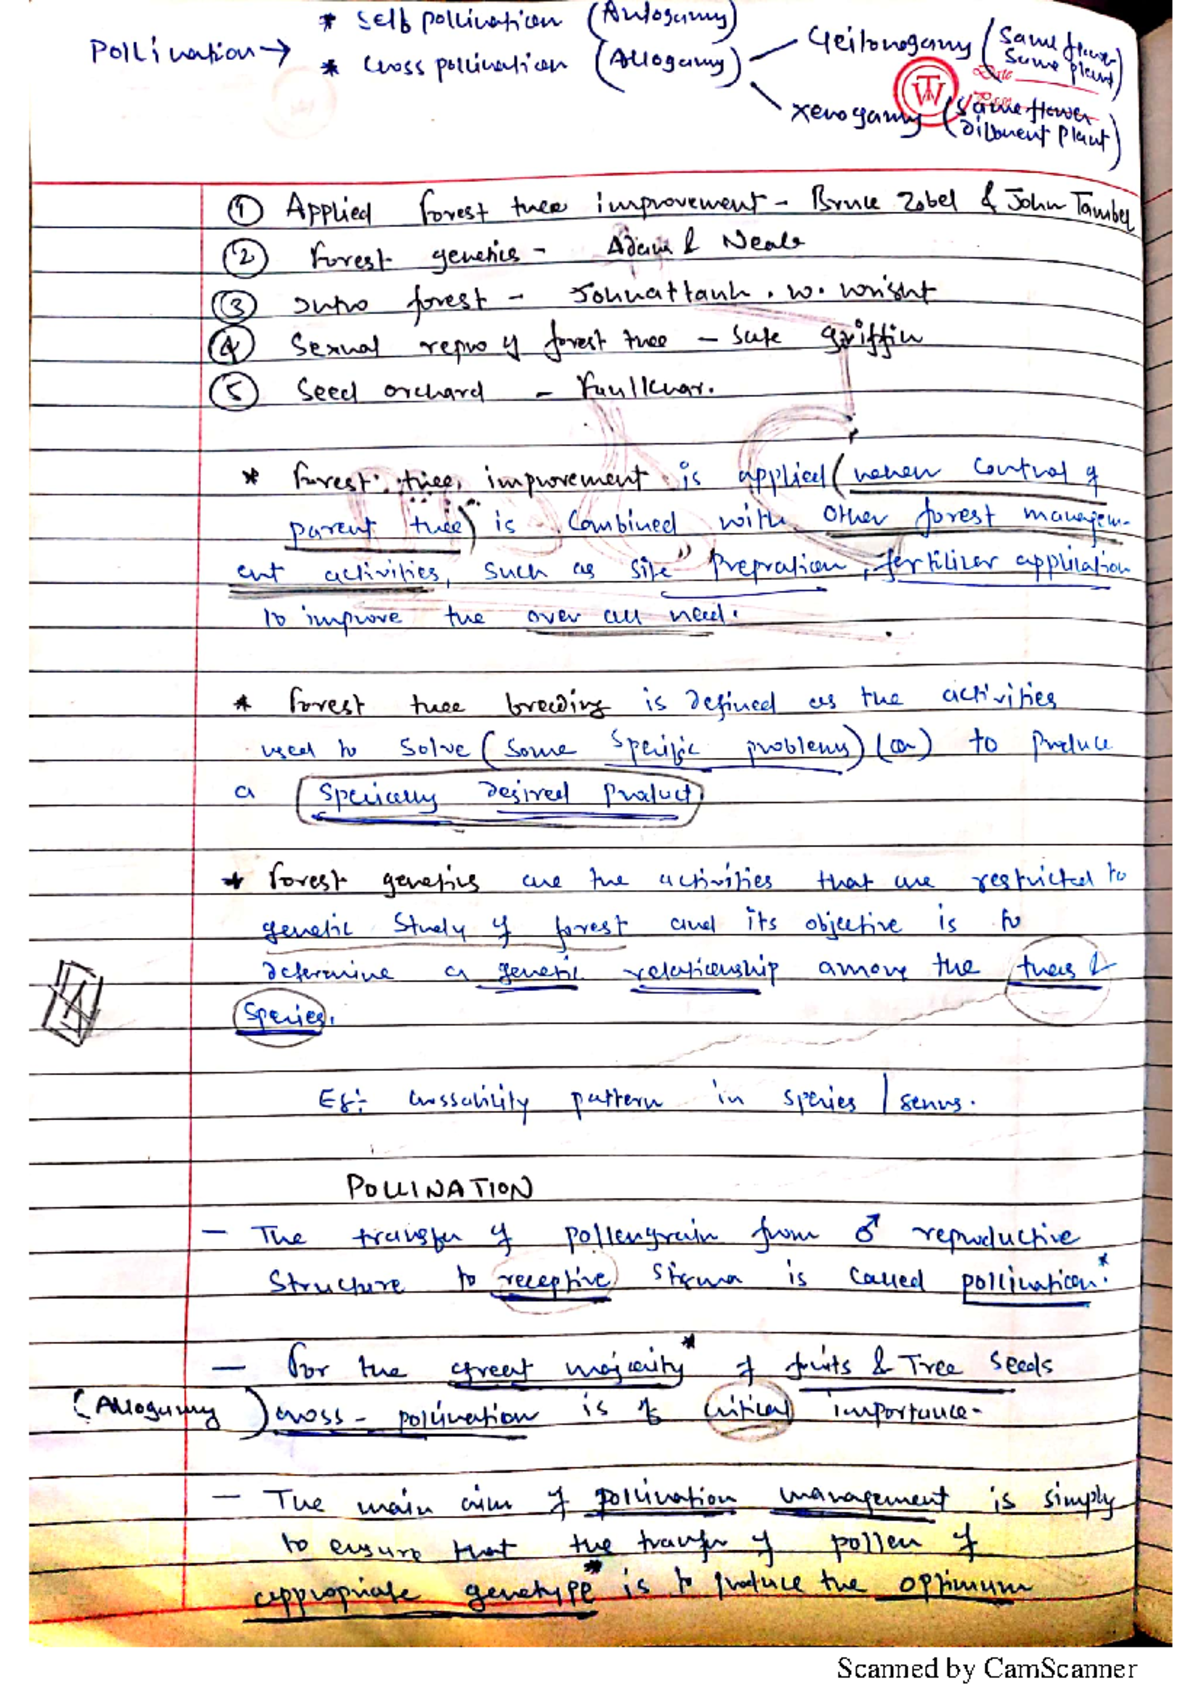 * Self pollination (Autogamy)
Pollination → * cross pollination (Allogamy)
Geitonogamy (same flower same plant)
xenogamy (same flower different plant)
① Applied forest tree improvement - Bruce Zobel & John Tambel
② Forest genetics - Adam & Neale
③ Intro forest - Johnattanh. W. Wright
④ Sexual repro of forest tree - Griffin
⑤ Seed orchard - Faulkhar.
* Forest tree improvement is applied (when control of
parent tree) is combined with other forest managem-
ent activities, such as site prepration, fertilizer application
to improve the over all need.
* Forest tree breeding is defined as the activities
used to solve (some specific problems) (or) to produce
a specially desired product.
* Forest genetics are the activities that are restricted to
genetic study of forest and its objective is to
determine a genetic relationship among the trees &
species.
Eg:- crossability pattern in species / genus.
POLLINATION
- The transfer of pollengrain from ♂ reproductive
structure to receptive stigma is called pollination.*
- For the great majority* of fruits & Tree seeds
(Allogamy) cross-pollination is of critical importance-
- The main aim of pollination management is simply
to ensure that the transfer of pollen of
appropriate genotype* is to produce the optimum
Scanned by CamScanner